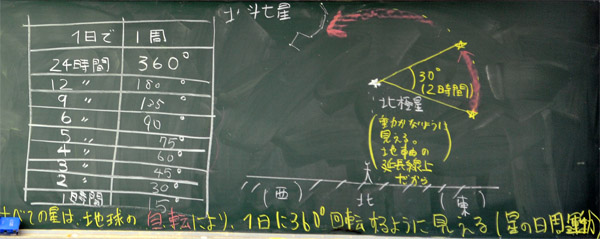 1日で 1周
24時間 360°
12 〃 180°
9 〃 135°
6 〃 90°
5 〃 75°
4 〃 60°
3 〃 45°
2 〃 30°
1時間 15°
北斗七星
30°
(2時間)
北極星
(動かないように
見える。
地軸の
延長線上
だから)
(西) 北 (東)
すべての星は、地球の自転により、1日に360°回転するように見える(星の日周運動)